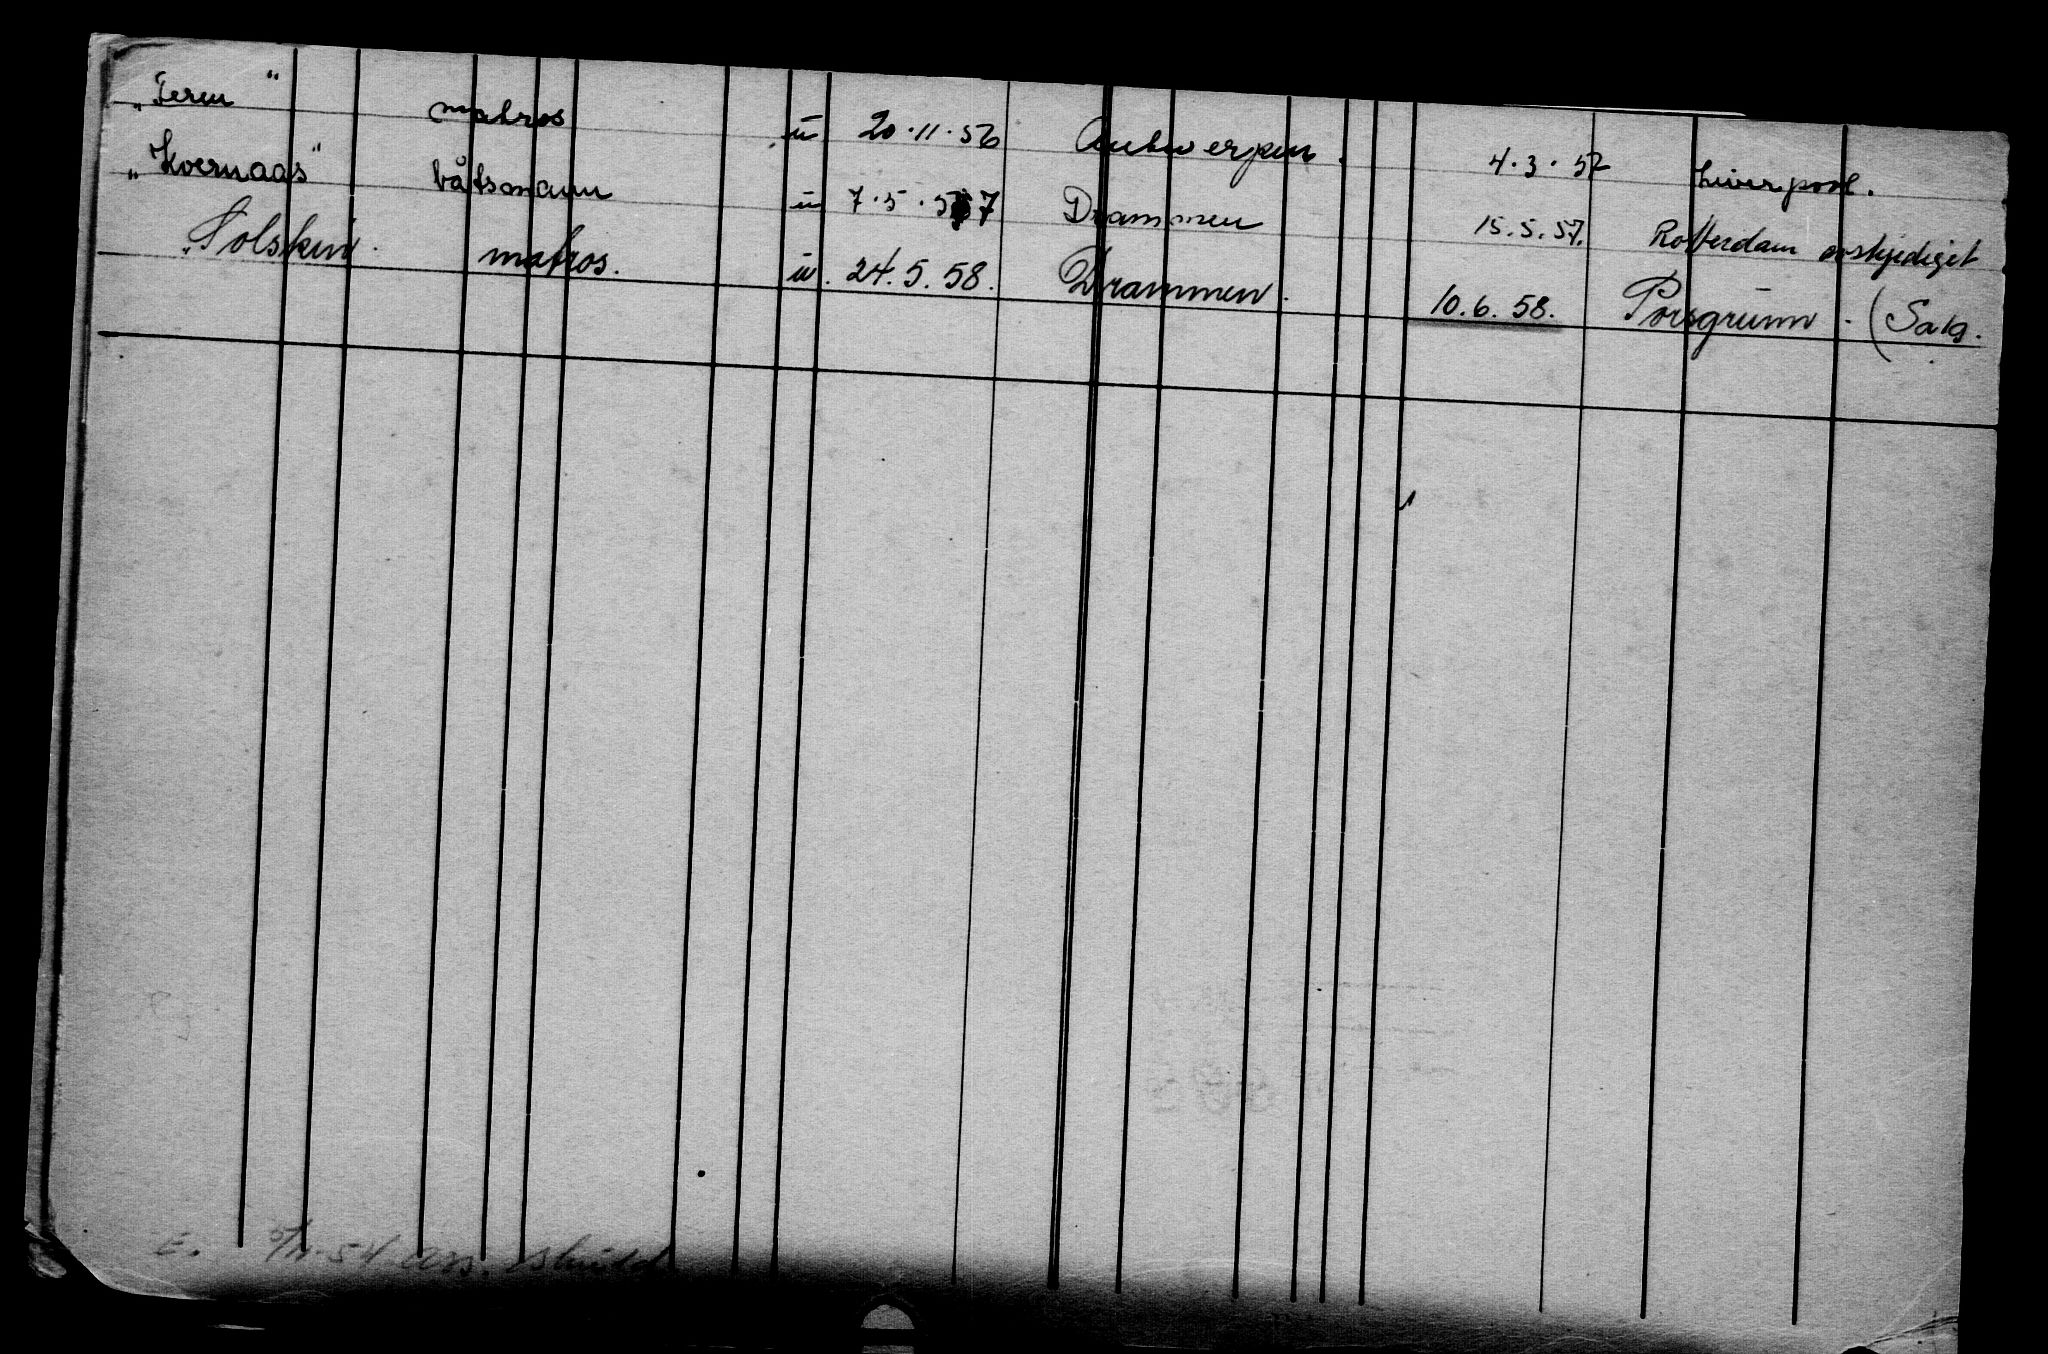 „Tern“ matros u 20.11.56 Antwerpen. 4.3.57 Liverpool.
„Kvernaas“ båtsmann u 7.5.57 Drammen 15.5.57. Rotterdam avskjediget
„Solskin. matros. u. 24.5.58. Drammen. 10.6.58. Porsgrunn. (Salg.
E. 5/11-54